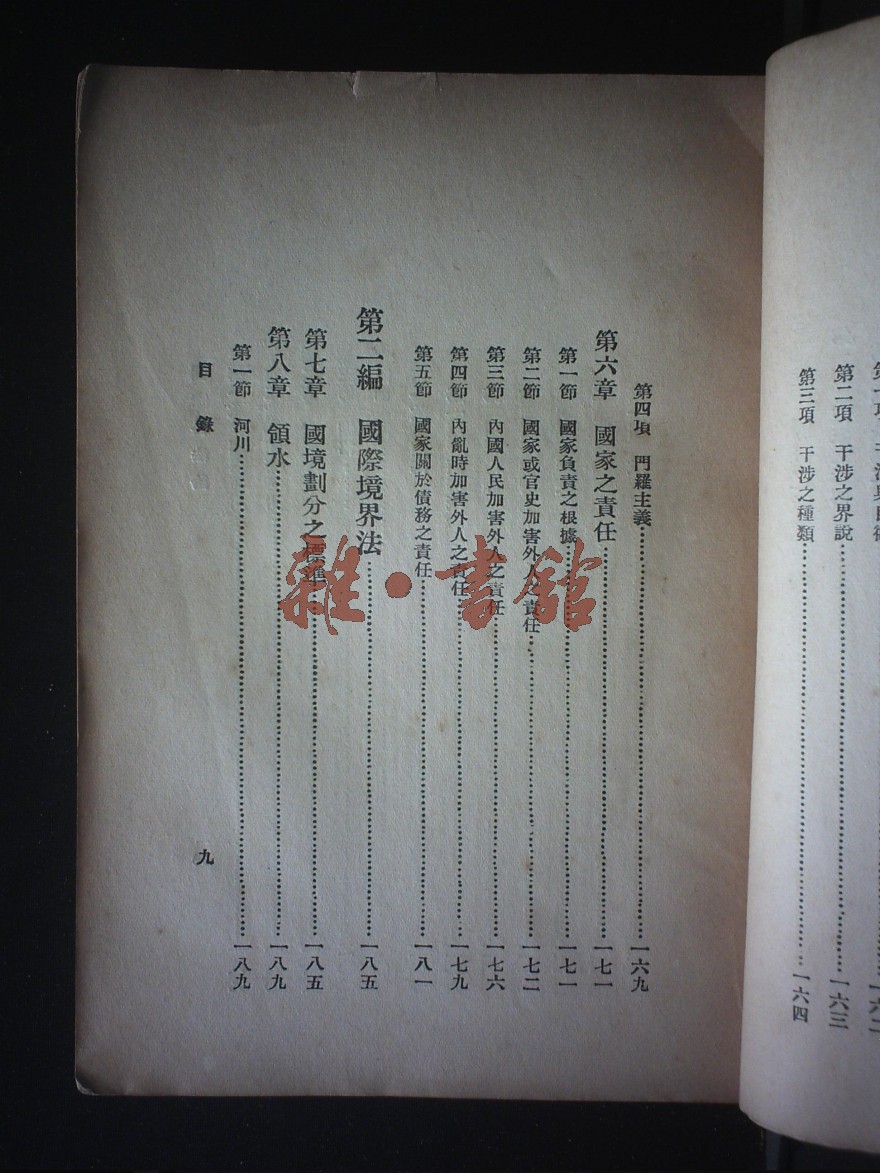 第二項　干涉之界說……一六三
第三項　干涉之種類……一六四
第四項　門羅主義……一六九
第六章　國家之責任……一七一
第一節　國家負責之根據……一七一
第二節　國家或官史加害外人之責任……一七二
第三節　內國人民加害外人之責任……一七六
第四節　內亂時加害外人之責任……一七九
第五節　國家關於債務之責任……一八一
第二編　國際境界法……一八五
第七章　國境劃分之標準……一八五
第八章　領水……一八九
第一節　河川……一八九
目錄　九
雜·書館